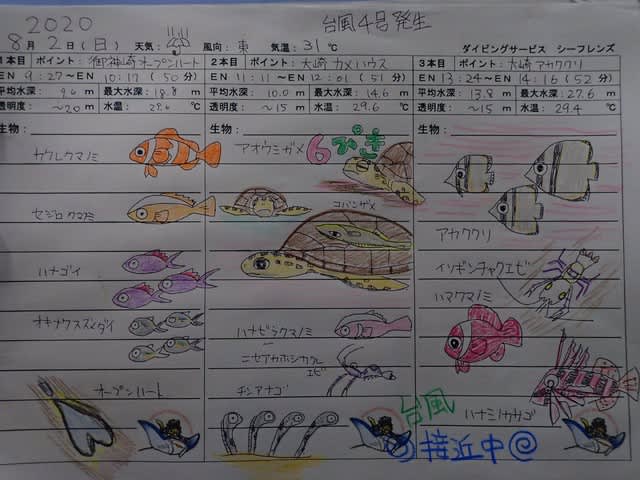 2020
台風4号発生
8月2日(日) 天気: 風向: 東 気温: 31℃ ダイビングサービス シーフレンズ
1本目 ポイント: 御神崎オープンハート
EN 9:27～EN 10:17 (50分)
平均水深: m 最大水深: 18.8 m
透明度: ～20m 水温: ℃
生物:
カクレクマノミ
セジロクマノミ
ハナゴイ
オキナワスズメダイ
オープンハート
2本目 ポイント: 大崎 カメハウス
EN 11:11～EN 12:01 (51分)
平均水深: 10.0 m 最大水深: 14.6 m
透明度: ～15m 水温: 29.6 ℃
生物:
アオウミガメ 6ぴき
コバンザメ
ハナビラクマノミ
ニセアカホシカクレ
エビ
チンアナゴ
3本目 ポイント: 大崎 アカククリ
EN 13:24～EN 14:16 (52分)
平均水深: 13.8 m 最大水深: 27.6 m
透明度: ～15m 水温: 29.4 ℃
生物:
アカククリ
イソギンチャクエビ
ハマクマノミ
ハナミノカサゴ
台風
接近中